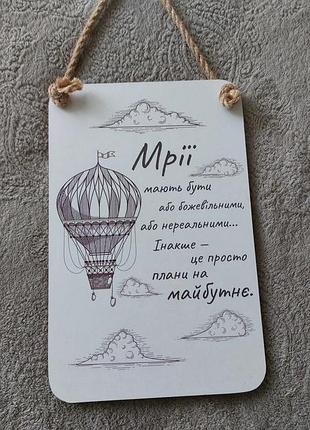 Мрії
мають бути
або божевільними,
або нереальними...
Інакше –
це просто
плани на
майбутнє.